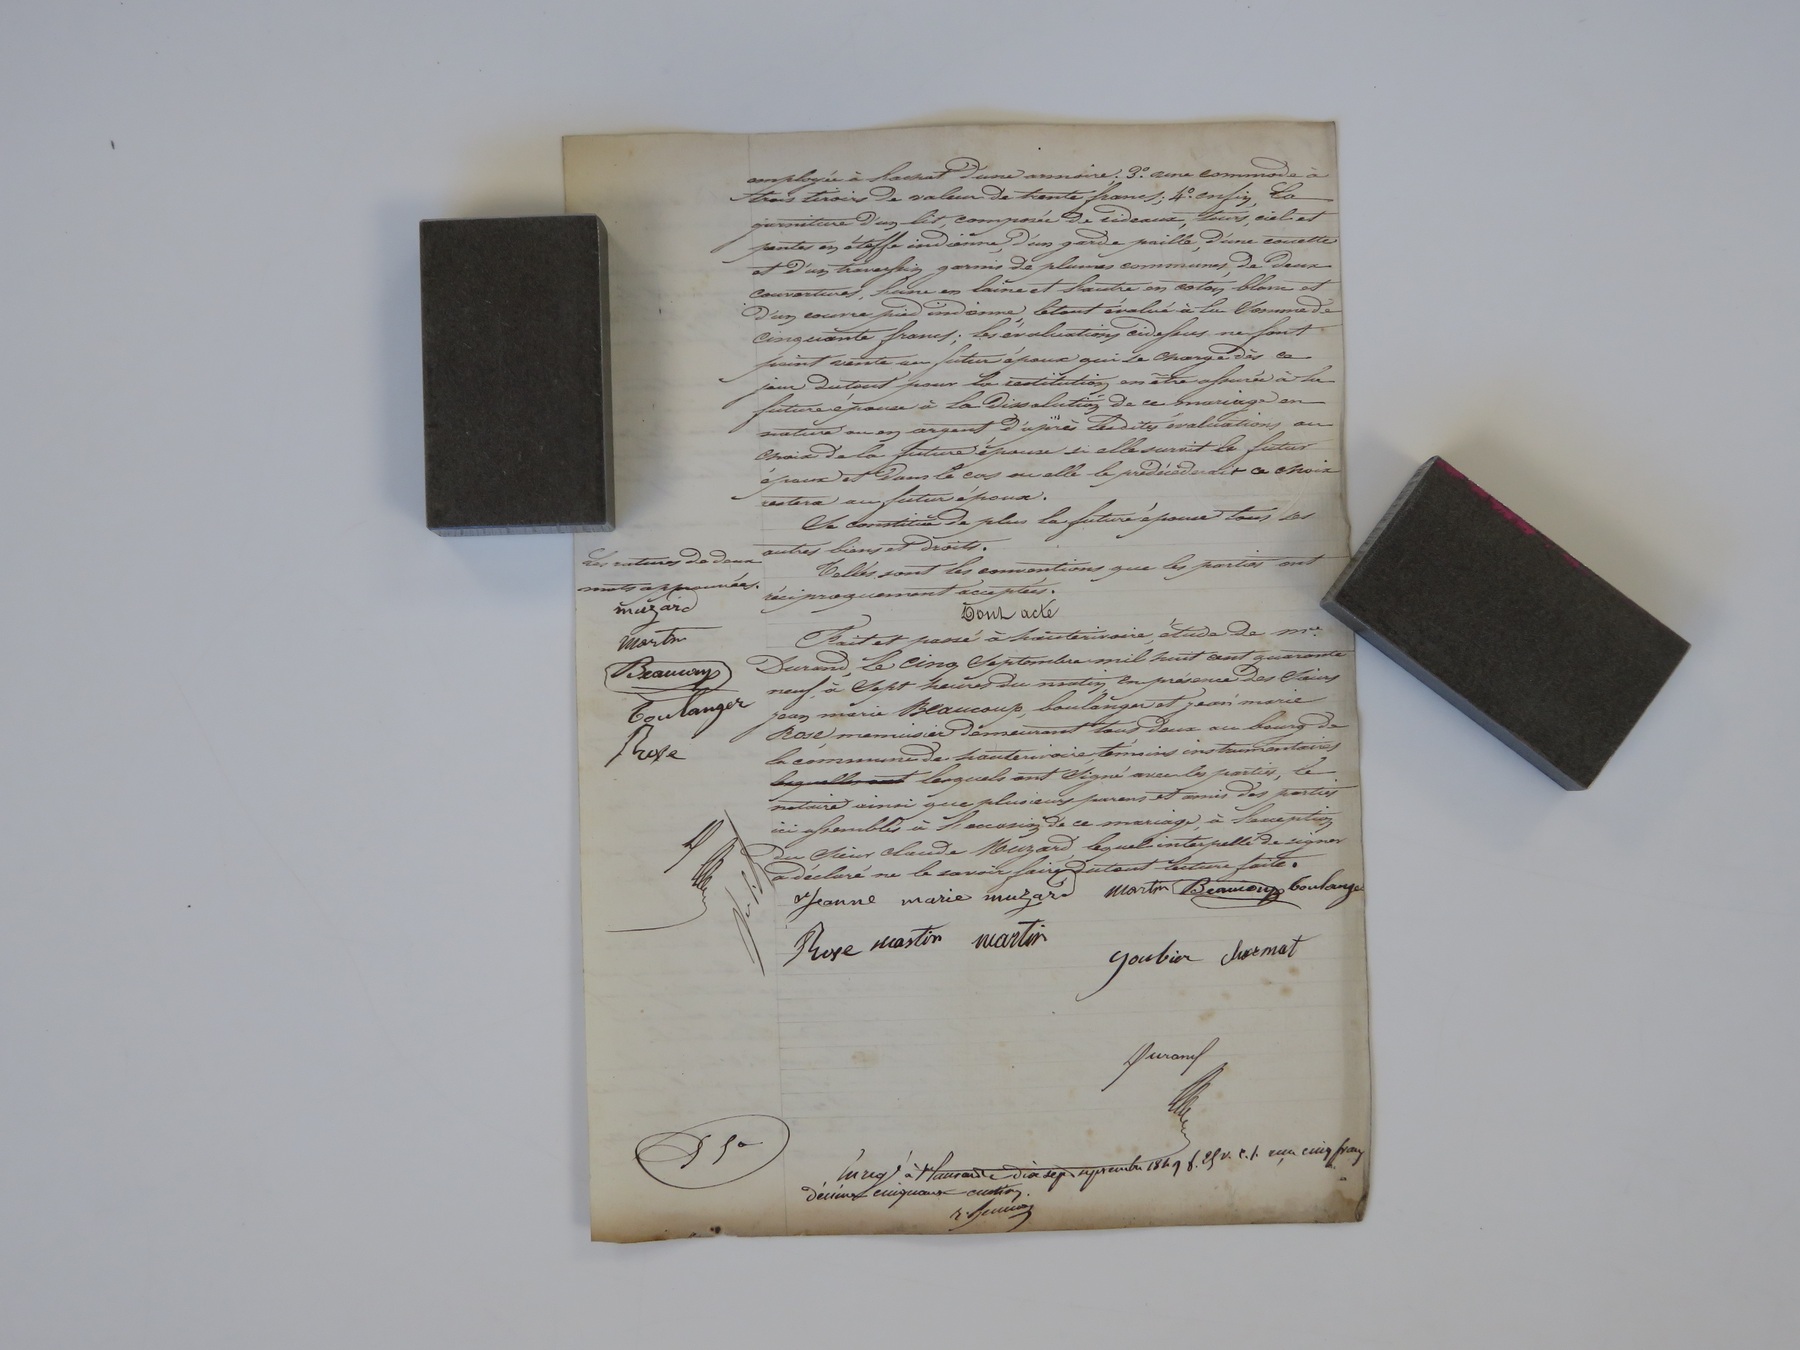 employée à l'achat d'une armoire; 3° une commode à
trois tiroirs de valeur de trente francs; 4° enfin, La
garniture d'un lit, composée de rideaux, tours, ciel et
pentes en étoffe indienne, d'un garde paille, d'une couette
et d'un traversin garnis de plumes communes, de deux
couvertures, l'une en laine et l'autre en coton blanc et
d'un couvre pied indienne, letout évalué à la Somme de
cinquante francs; les évaluations cidessus ne font
point vente au futur époux qui se charge dès ce
jour dutout pour la restitution en être assurée à la
future épouse à la Dissolution de ce mariage en
nature ou en argent d'après lesdites évaluations au
choix de la future épouse si elle survit le futur
époux et dans le cas ou elle le prédécéderait ce choix
restera au futur époux.
Se constitue de plus la future épouse tous ses
autres biens et droits.
Telles sont les conventions que les parties ont
réciproquement acceptées.
Dont acte
Fait et passé à hauterivoire, étude de me
Durand, le cinq Septembre mil huit cent quarante
neuf, à Sept heures du matin En présence des Sieurs
jean marie Beaucoup, boulanger et jean marie
Rose menuisier demeurant tous deux au bourg de
la commune de hauterivoire, témoins instrumentaires
lesquels ont signé avec les parties, le
notaire ainsi que plusieurs parens et amis des parties
ici assemblés à l'occasion de ce mariage, à l'exception
du Sieur claude Muzard lequel interpellé de signer
a déclaré ne le savoir faire, dutout lecture faite.
Les ratures de deux
mots approuvées.
muzard
Martin
Beaucoup
boulanger
Rose
Jeanne marie muzard martin Beaucoup boulanger
Rose martin martin
goubier chermat
Durand
Enreg à dix sept septembre 1849 f. 25 v. c. 1. reçu cinq francs
décime cinquante centimes.